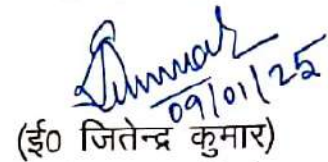 09/01/25
(ई0 जितेन्द्र कुमार)